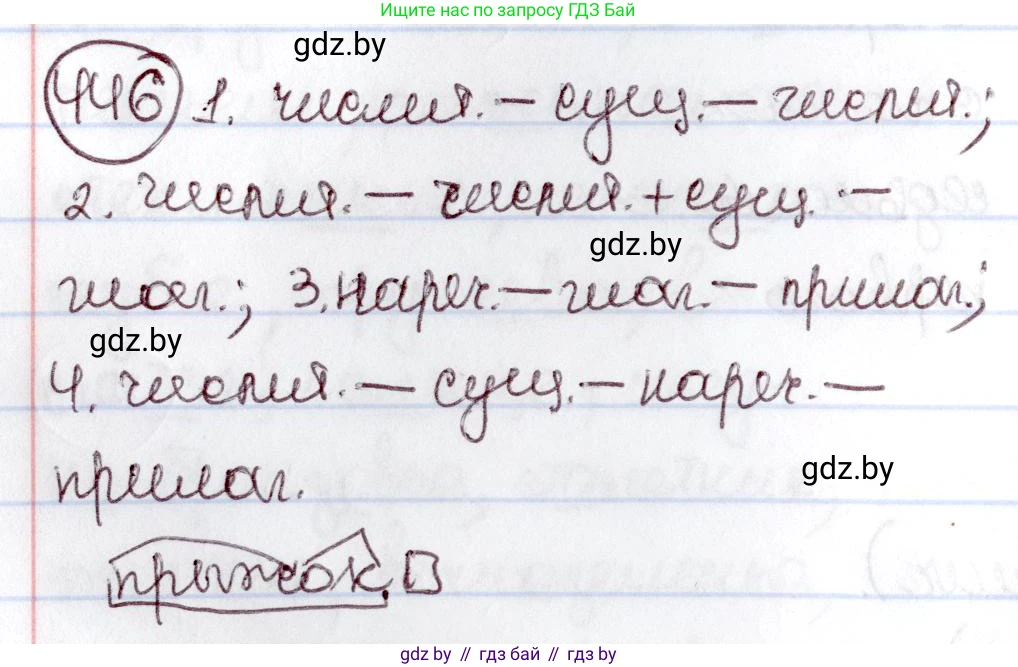 Ищите нас по запросу ГДЗ Бай
gdz.by
446 1. числит. – сущ. – числит.;
2. числит. – числит. + сущ. –
gdz.by
глаг.; 3. нареч. – глаг. – прилаг.;
gdz.by
4. числит. – сущ. – нареч. –
gdz.by
прилаг.
прыжок
gdz.by // гдз бай // gdz.by